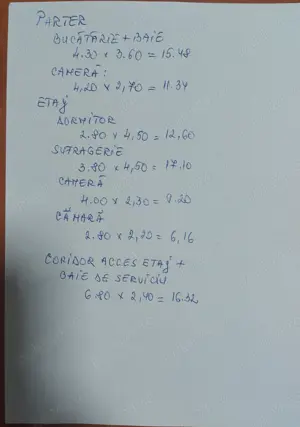 PARTER
BUCĂTĂRIE + BAIE
4.30 x 3.60 = 15.48
CAMERĂ:
4,20 x 2,70 = 11.34
ETAJ
DORMITOR
2.80 x 4,50 = 12,60
SUFRAGERIE
3.80 x 4,50 = 17.10
CAMERĂ
4.00 x 2,30 = 9.20
CĂMARĂ
2.80 x 2,20 = 6,16
CORIDOR ACCES ETAJ +
BAIE DE SERVICIU
6.80 x 2,40 = 16.32